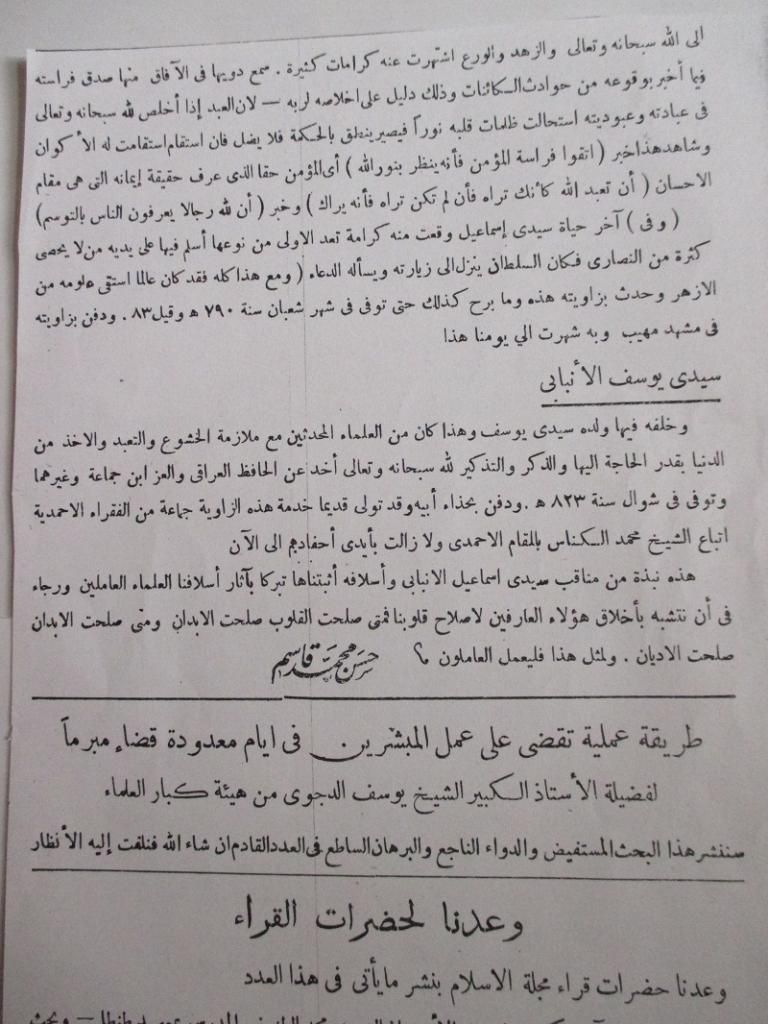 الى الله سبحانه وتعالى والزهد والورع اشتهرت عنه كرامات كثيرة . سمع دويها فى الآفاق منها صدق فراسته
فيما أخبر بوقوعه من حوادث السكائنات وذلك دليل على اخلاصه لربه — لان العبد إذا أخلص لله سبحانه وتعالى
فى عبادته وعبوديته استحالت ظلمات قلبه نوراً فيصير ينطق بالحكمة فلا يضل فان استقام استقامت له الأكوان
وشاهد هذا خبر ( اتقوا فراسة المؤمن فأنه ينظر بنور الله ) أى المؤمن حقا الذى عرف حقيقة إيمانه التى هى مقام
الاحسان ( أن تعبد الله كأنك تراه فأن لم تكن تراه فأنه يراك ) وخبر ( أن لله رجالا يعرفون الناس بالتوسم )
( وفى ) آخر حياة سيدى إسماعيل وقعت منه كرامة تعد الاولى من نوعها أسلم فيها على يديه من لا يحصى
كثرة من النصارى فكان السلطان ينزل الى زيارته ويسأله الدعاء ( ومع هذا كله فقد كان عالما استقى علومه من
الازهر وحدث بزاويته هذه وما برح كذلك حتى توفى فى شهر شعبان سنة ٧٩٠ ه وقيل ٨٣ . ودفن بزاويته
فى مشهد مهيب وبه شهرت الي يومنا هذا
سيدى يوسف الأنبابى
وخلفه فيها ولده سيدى يوسف وهذا كان من العلماء المحدثين مع ملازمة الخشوع والتعبد والاخذ من
الدنيا بقدر الحاجة اليها والذكر والتذكير لله سبحانه وتعالى أخذ عن الحافظ العراقى والعز ابن جماعة وغيرهما
وتوفى فى شوال سنة ٨٢٣ ه . ودفن بحذاء أبيه وقد تولى قديما خدمة هذه الزاوية جماعة من الفقراء الاحمدية
اتباع الشيخ محمد السكناس بالمقام الاحمدى ولا زالت بأيدى أحفادهم الى الآن
هذه نبذة من مناقب سيدى اسماعيل الانبابى وأسلافه أثبتناها تبركا بآثار أسلافنا العلماء العاملين ورجاء
فى أن نتشبه بأخلاق هؤلاء العارفين لاصلاح قلوبنا فمتى صلحت القلوب صلحت الابدان ومتى صلحت الابدان
صلحت الاديان . ولمثل هذا فليعمل العاملون ؟ حسن محمد قاسم
طريقة عملية تقضى على عمل المبشرين فى ايام معدودة قضاء مبرماً
لفضيلة الأستاذ السكبير الشيخ يوسف الدجوى من هيئة كبار العلماء
سننشر هذا البحث المستفيض والدواء الناجع والبرهان الساطع فى العدد القادم ان شاء الله فنلفت إليه الأنظار
وعدنا لحضرات القراء
وعدنا حضرات قراء مجلة الاسلام بنشر ما يأتى فى هذا العدد